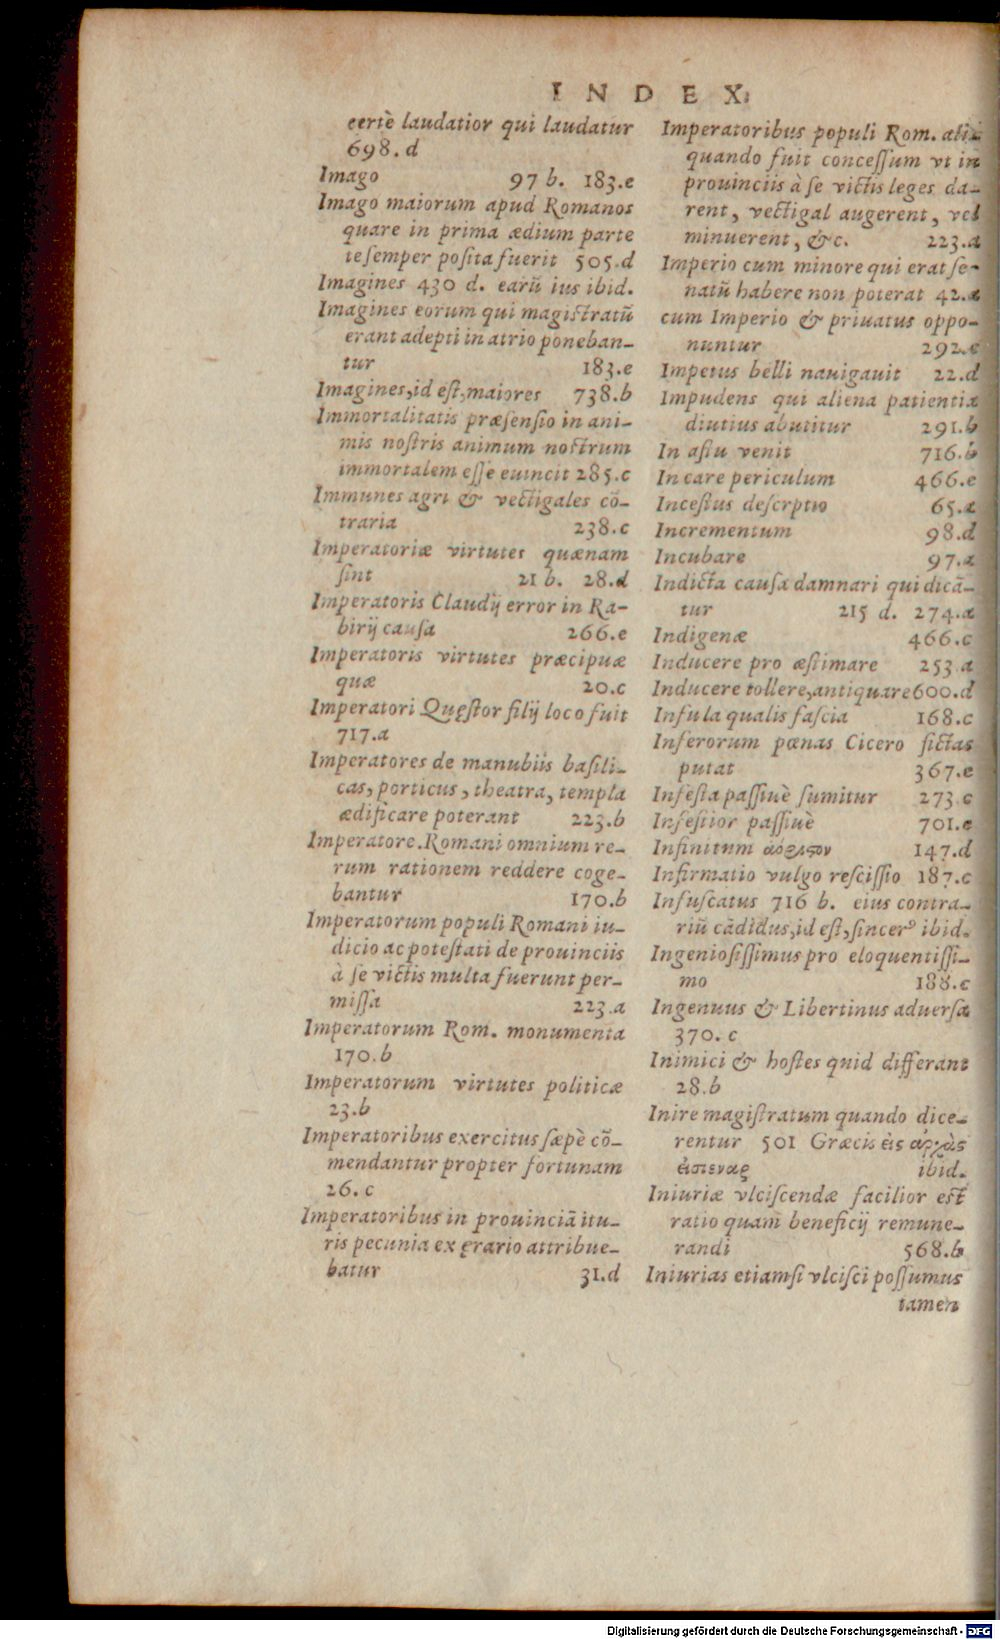 INDEX.
certè laudatior qui laudatur
698.d
Imago 97 b. 183.e
Imago maiorum apud Romanos
quare in prima ædium parte
te semper posita fuerit 505.d
Imagines 430 d. earũ ius ibid.
Imagines eorum qui magistratũ
erant adepti in atrio poneban-
tur 183.e
Imagines, id est, maiores 738.b
Immortalitatis præsensio in ani-
mis nostris animum nostrum
immortalem esse euincit 285.c
Immunes agri & vectigales cõ-
traria 238.c
Imperatoriæ virtutes quænam
sint 21 b. 28.d
Imperatoris Claudij error in Ra-
birij causa 266.e
Imperatoris virtutes præcipuæ
quæ 20.c
Imperatori Quęstor filij loco fuit
717.a
Imperatores de manubiis basili-
cas, porticus, theatra, templa
ædificare poterant 223.b
Imperatore. Romani omnium re-
rum rationem reddere coge-
bantur 170.b
Imperatorum populi Romani iu-
dicio ac potestati de prouinciis
à se victis multa fuerunt per-
missa 223.a
Imperatorum Rom. monumenta
170.b
Imperatorum virtutes politicæ
23.b
Imperatoribus exercitus sæpè cõ-
mendantur propter fortunam
26.c
Imperatoribus in prouinciã itu-
ris pecunia ex ęrario attribue-
batur 31.d
Imperatoribus populi Rom. ali-
quando fuit concessum vt in
prouinciis à se victis leges da-
rent, vectigal augerent, vel
minuerent, &c. 223.a
Imperio cum minore qui erat se-
natũ habere non poterat 42.a
cum Imperio & priuatus oppo-
nuntur 292.c
Impetus belli nauigauit 22.d
Impudens qui aliena patientia
diutius abutitur 291.b
In astu venit 716.b
In care periculum 466.e
Incestus descrptio 65.a
Incrementum 98.d
Incubare 97.a
Indicta causa damnari qui dicã-
tur 215 d. 274.a
Indigenæ 466.c
Inducere pro æstimare 253 a
Inducere tollere, antiquare 600.d
Insula qualis fascia 168.c
Inferorum pœnas Cicero fictas
putat 367.e
Infesta passiuè sumitur 273 c
Infestior passiuè 701.e
Infinitum ἀόριστον 147.d
Infirmatio vulgo rescissio 187.c
Infuscatus 716 b. eius contra-
riũ cãdidus, id est, sincerꝰ ibid.
Ingeniosissimus pro eloquentissi-
mo 188.c
Ingenuus & Libertinus aduersa
370.c
Inimici & hostes quid differant
28.b
Inire magistratum quando dice-
rentur 501 Græcis εἰς ἀρχὰς
εἰσιεναι ibid.
Iniuriæ vlciscendæ facilior est
ratio quàm beneficij remune-
randi 568.b
Iniurias etiamsi vlcisci possumus
tamen
Digitalisierung gefördert durch die Deutsche Forschungsgemeinschaft - DFG